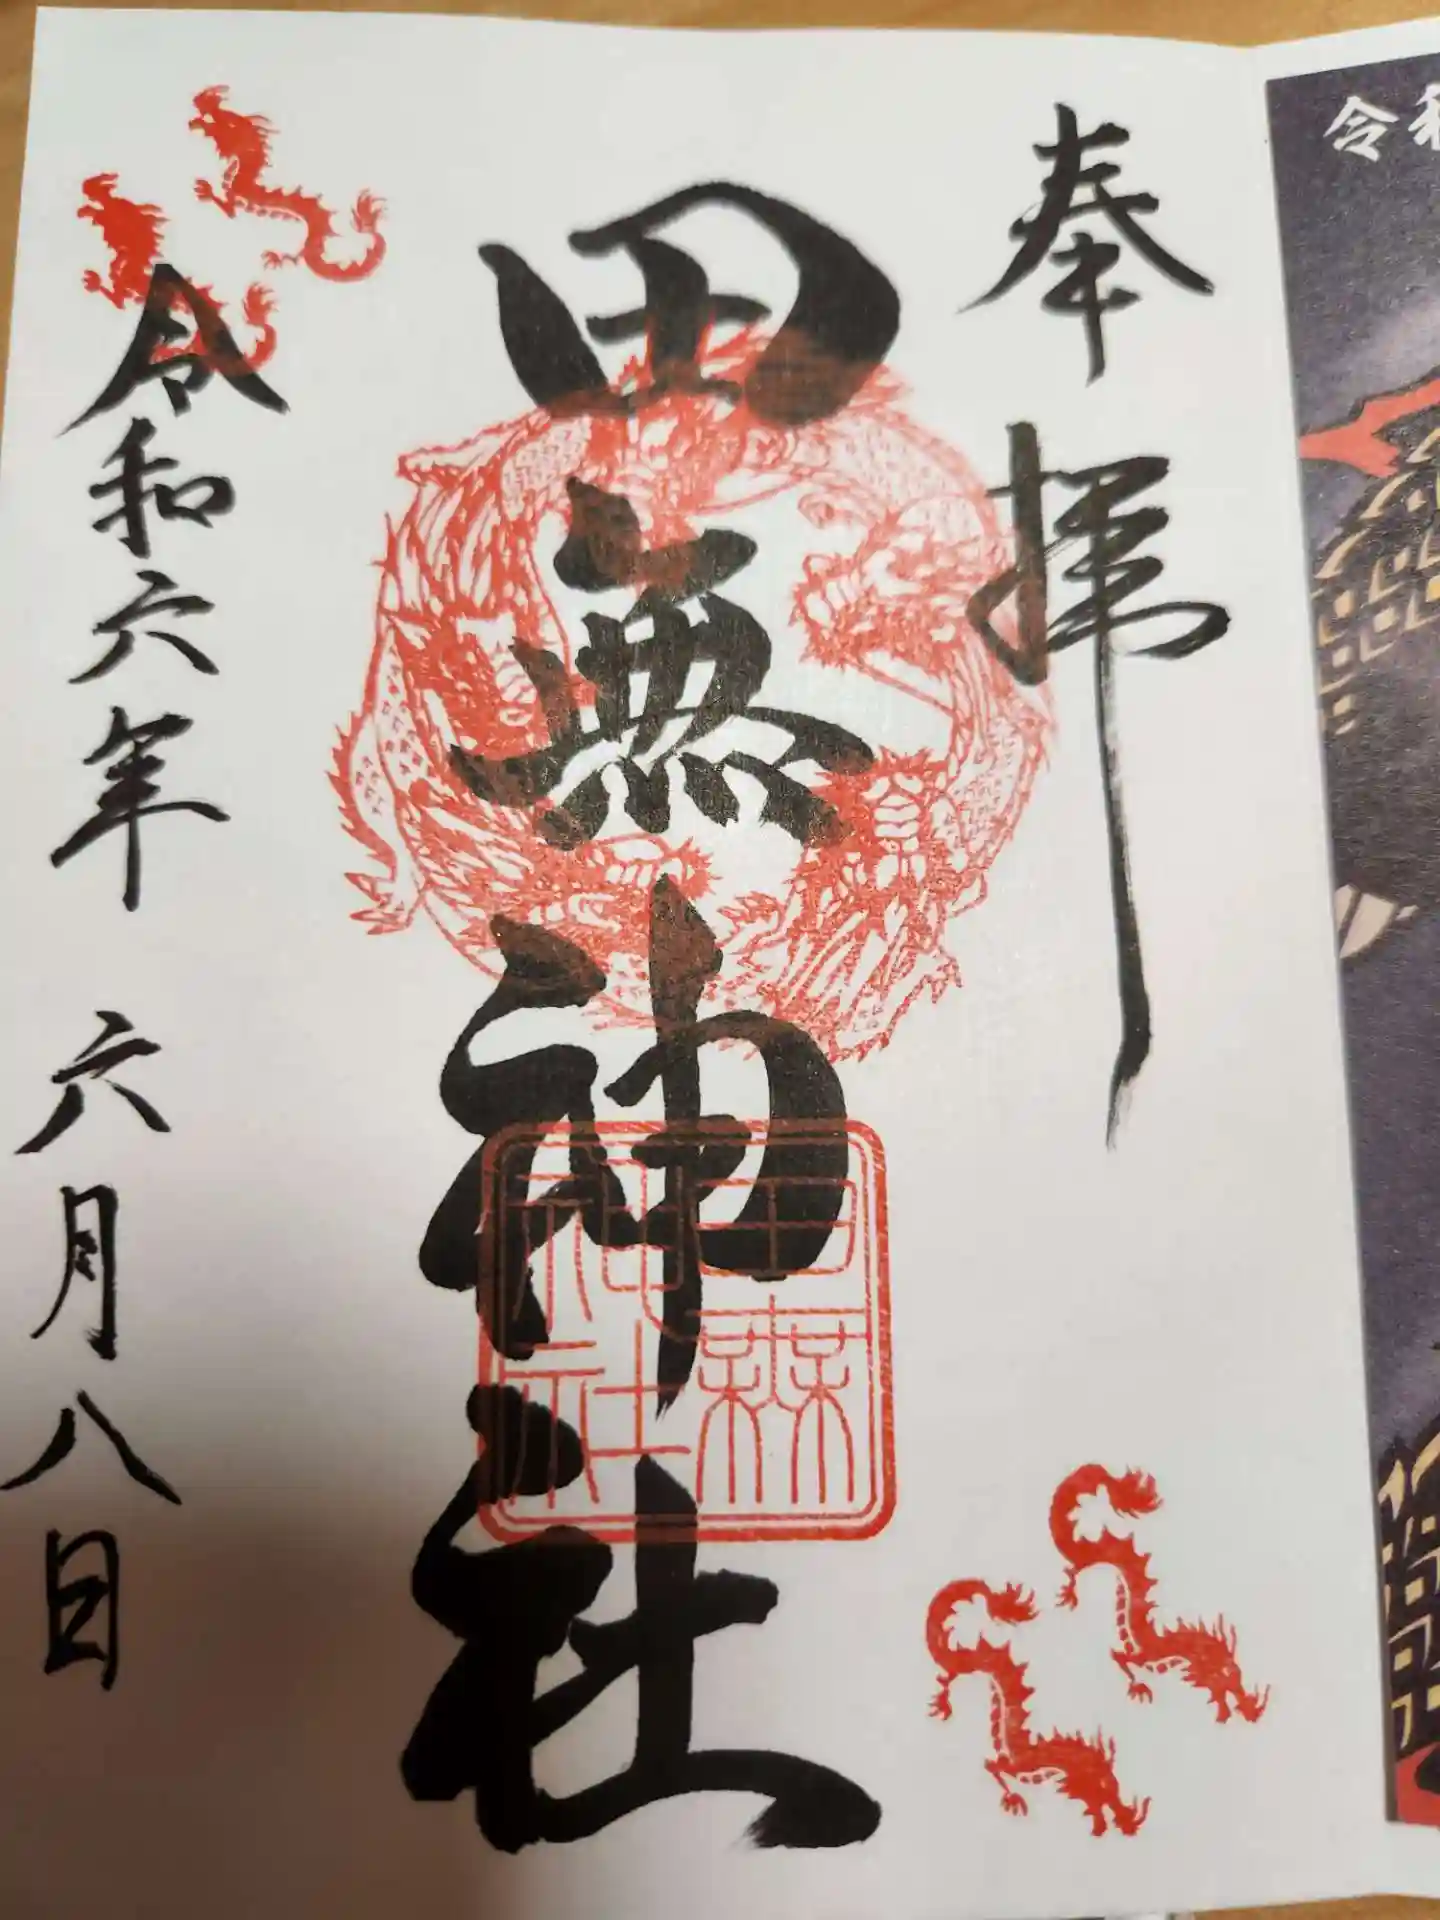 奉拝
田無神社
田無神社
令和六年 六月八日
令和